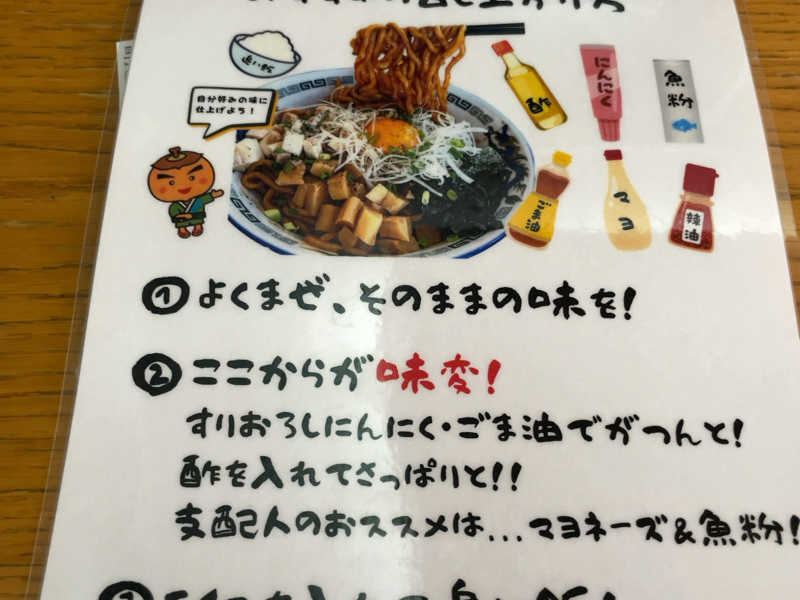 追い飯
自分好みの味に
仕上げよう！
酢
にんにく
魚粉
ごま油
マヨ
辣油
①よくまぜ、そのままの味を！
②ここからが味変！
すりおろしにんにく・ごま油でがつんと！
酢を入れてさっぱりと！！
支配人のおススメは...マヨネーズ&魚粉！